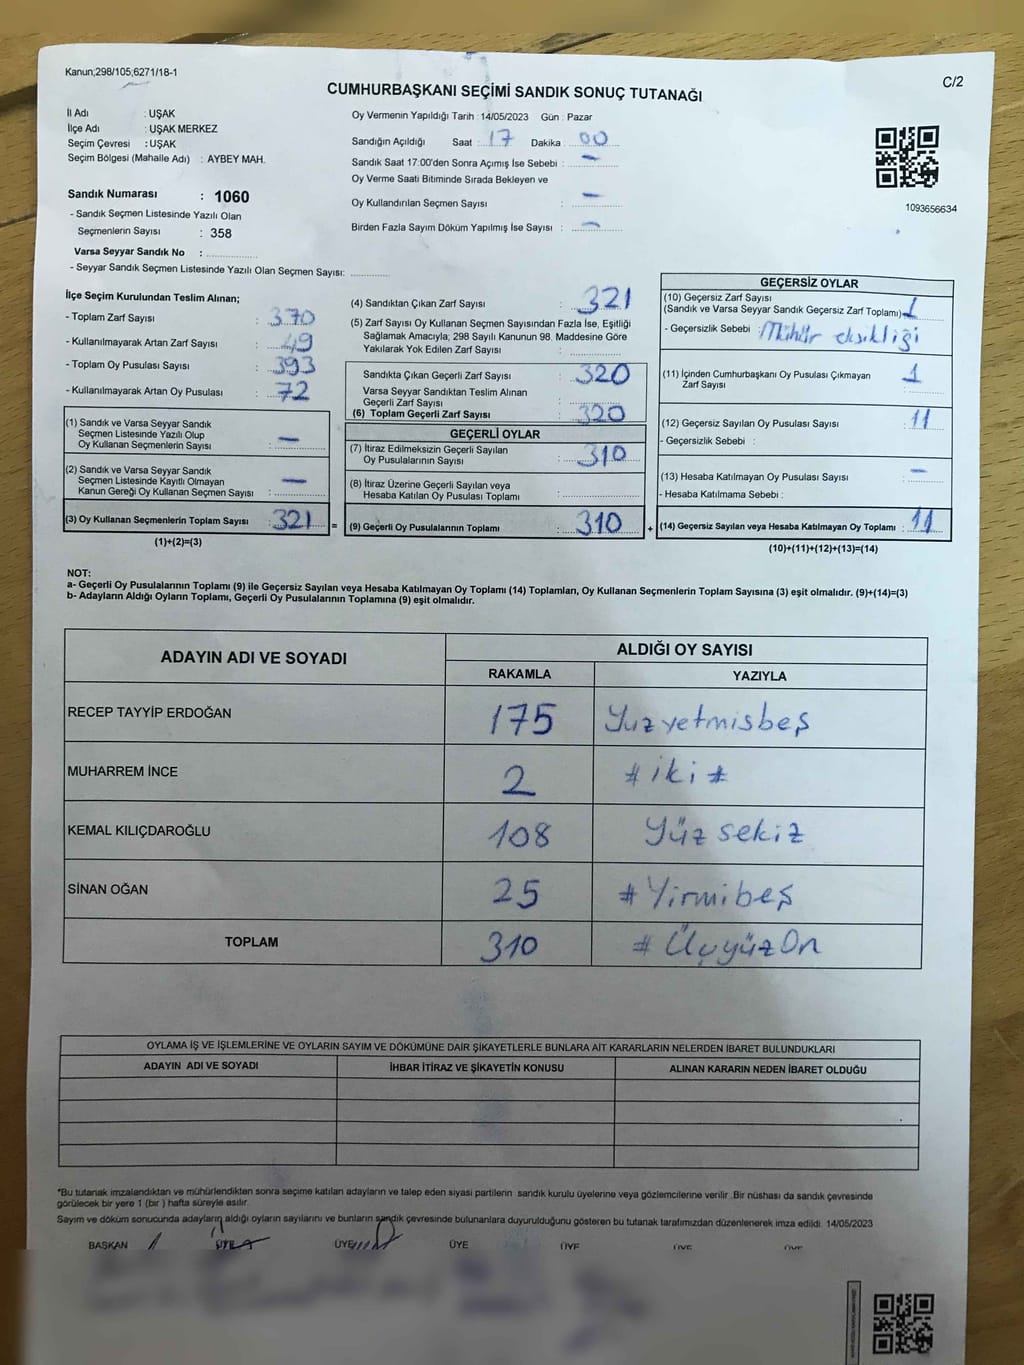 Kanun;298/105;6271/18-1
C/2
CUMHURBAŞKANI SEÇİMİ SANDIK SONUÇ TUTANAĞI
İl Adı : UŞAK
İlçe Adı : UŞAK MERKEZ
Seçim Çevresi : UŞAK
Seçim Bölgesi (Mahalle Adı) : AYBEY MAH.
Sandık Numarası : 1060
- Sandık Seçmen Listesinde Yazılı Olan
Seçmenlerin Sayısı : 358
Varsa Seyyar Sandık No :
- Seyyar Sandık Seçmen Listesinde Yazılı Olan Seçmen Sayısı:
Oy Vermenin Yapıldığı Tarih : 14/05/2023 Gün : Pazar
Sandığın Açıldığı Saat : 17 Dakika : 00
Sandık Saat 17:00'den Sonra Açımış İse Sebebi : –
Oy Verme Saati Bitiminde Sırada Bekleyen ve
Oy Kullandırılan Seçmen Sayısı : –
Birden Fazla Sayım Döküm Yapılmış İse Sayısı : –
1093656634
İlçe Seçim Kurulundan Teslim Alınan;
- Toplam Zarf Sayısı : 370
- Kullanılmayarak Artan Zarf Sayısı : 49
- Toplam Oy Pusulası Sayısı : 393
- Kullanılmayarak Artan Oy Pusulası : 72
(1) Sandık ve Varsa Seyyar Sandık
Seçmen Listesinde Yazılı Olup
Oy Kullanan Seçmenlerin Sayısı : –
(2) Sandık ve Varsa Seyyar Sandık
Seçmen Listesinde Kayıtlı Olmayan
Kanun Gereği Oy Kullanan Seçmen Sayısı : –
(3) Oy Kullanan Seçmenlerin Toplam Sayısı : 321 =
(1)+(2)=(3)
(4) Sandıktan Çıkan Zarf Sayısı : 321
(5) Zarf Sayısı Oy Kullanan Seçmen Sayısından Fazla İse, Eşitliği
Sağlamak Amacıyla; 298 Sayılı Kanunun 98. Maddesine Göre
Yakılarak Yok Edilen Zarf Sayısı :
Sandıkta Çıkan Geçerli Zarf Sayısı : 320
Varsa Seyyar Sandıktan Teslim Alınan
Geçerli Zarf Sayısı :
(6) Toplam Geçerli Zarf Sayısı : 320
GEÇERLİ OYLAR
(7) İtiraz Edilmeksizin Geçerli Sayılan
Oy Pusulalarının Sayısı : 310
(8) İtiraz Üzerine Geçerli Sayılan veya
Hesaba Katılan Oy Pusulası Toplamı :
(9) Geçerli Oy Pusulalarının Toplamı : 310 +
GEÇERSİZ OYLAR
(10) Geçersiz Zarf Sayısı
(Sandık ve Varsa Seyyar Sandık Geçersiz Zarf Toplamı) 1
- Geçersizlik Sebebi : Mühür eksikliği
(11) İçinden Cumhurbaşkanı Oy Pusulası Çıkmayan
Zarf Sayısı : 1
(12) Geçersiz Sayılan Oy Pusulası Sayısı : 11
- Geçersizlik Sebebi :
(13) Hesaba Katılmayan Oy Pusulası Sayısı : –
- Hesaba Katılmama Sebebi :
(14) Geçersiz Sayılan veya Hesaba Katılmayan Oy Toplamı : 11
(10)+(11)+(12)+(13)=(14)
NOT:
a- Geçerli Oy Pusulalarının Toplamı (9) ile Geçersiz Sayılan veya Hesaba Katılmayan Oy Toplamı (14) Toplamları, Oy Kullanan Seçmenlerin Toplam Sayısına (3) eşit olmalıdır. (9)+(14)=(3)
b- Adayların Aldığı Oyların Toplamı, Geçerli Oy Pusulalarının Toplamına (9) eşit olmalıdır.
ADAYIN ADI VE SOYADI
ALDIĞI OY SAYISI
RAKAMLA YAZIYLA
RECEP TAYYİP ERDOĞAN 175 Yuzyetmisbeş
MUHARREM İNCE 2 # iki #
KEMAL KILIÇDAROĞLU 108 Yüz sekiz
SİNAN OĞAN 25 # Yirmibeş
TOPLAM 310 # ÜçyüzOn
OYLAMA İŞ VE İŞLEMLERİNE VE OYLARIN SAYIM VE DÖKÜMÜNE DAİR ŞİKAYETLERLE BUNLARA AİT KARARLARIN NELERDEN İBARET BULUNDUKLARI
ADAYIN ADI VE SOYADI İHBAR İTİRAZ VE ŞİKAYETİN KONUSU ALINAN KARARIN NEDEN İBARET OLDUĞU
*Bu tutanak imzalandıktan ve mühürlendikten sonra seçime katılan adayların ve talep eden siyasi partilerin sandık kurulu üyelerine veya gözlemcilerine verilir. Bir nüshası da sandık çevresinde
görülecek bir yere 1 (bir ) hafta süreyle asılır.
Sayım ve döküm sonucunda adayların aldığı oyların sayılarını ve bunların sandık çevresinde bulunanlara duyurulduğunu gösteren bu tutanak tarafımızdan düzenlenerek imza edildi. 14/05/2023
BAŞKAN ÜYE ÜYE ÜYE ÜYE ÜYE ÜYE